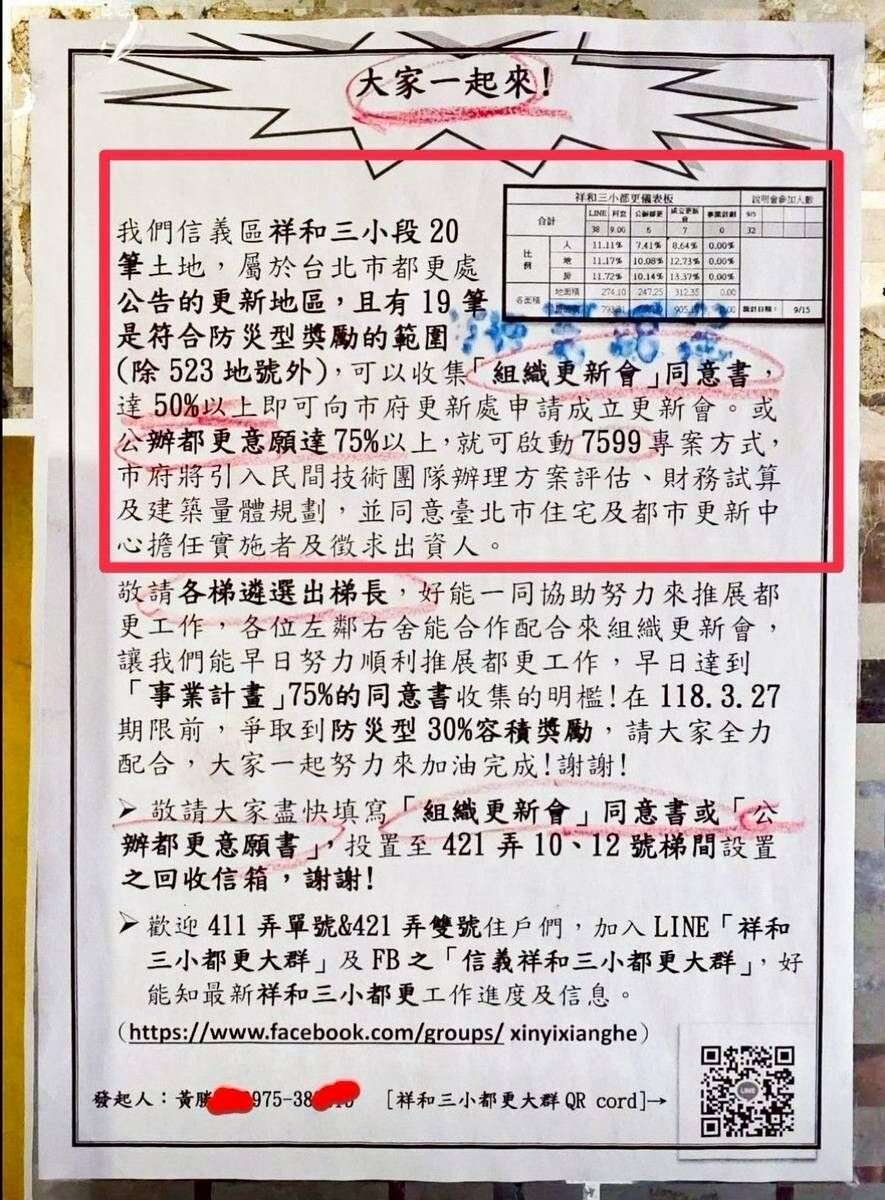 大家一起來!
祥和三小都更儀表板 說明會參加人數
合計 LINE 公辦都更 成立更新會 事業計劃 9/5
38 9.00 6 7 0 32
比例 人 11.11% 7.41% 8.64% 0.00%
地 11.17% 10.08% 12.73% 0.00%
房 11.72% 10.14% 13.37% 0.00%
各面積 地面積 274.10 247.25 312.35 0.00
統計日期： 9/15
我們信義區祥和三小段 20
筆土地，屬於台北市都更處
公告的更新地區，且有 19 筆
是符合防災型獎勵的範圍
(除 523 地號外)，可以收集「組織更新會」同意書，
達 50%以上即可向市府更新處申請成立更新會。或
公辦都更意願達 75%以上，就可啟動 7599 專案方式，
市府將引入民間技術團隊辦理方案評估、財務試算
及建築量體規劃，並同意臺北市住宅及都市更新中
心擔任實施者及徵求出資人。
敬請各梯遴選出梯長，好能一同協助努力來推展都
更工作，各位左鄰右舍能合作配合來組織更新會，
讓我們能早日努力順利推展都更工作，早日達到
「事業計畫」75%的同意書收集的明檻!在 118.3.27
期限前，爭取到防災型 30%容積獎勵，請大家全力
配合，大家一起努力來加油完成!謝謝!
➢ 敬請大家盡快填寫「組織更新會」同意書或「公
辦都更意願書」，投置至 421 弄 10、12 號梯間設置
之回收信箱，謝謝!
➢ 歡迎 411 弄單號&421 弄雙號住戶們，加入 LINE「祥和
三小都更大群」及 FB 之「信義祥和三小都更大群」，好
能知最新祥和三小都更工作進度及信息。
（https://www.facebook.com/groups/ xinyixianghe）
發起人：黃勝 975-38 [祥和三小都更大群 QR cord]→
LINE